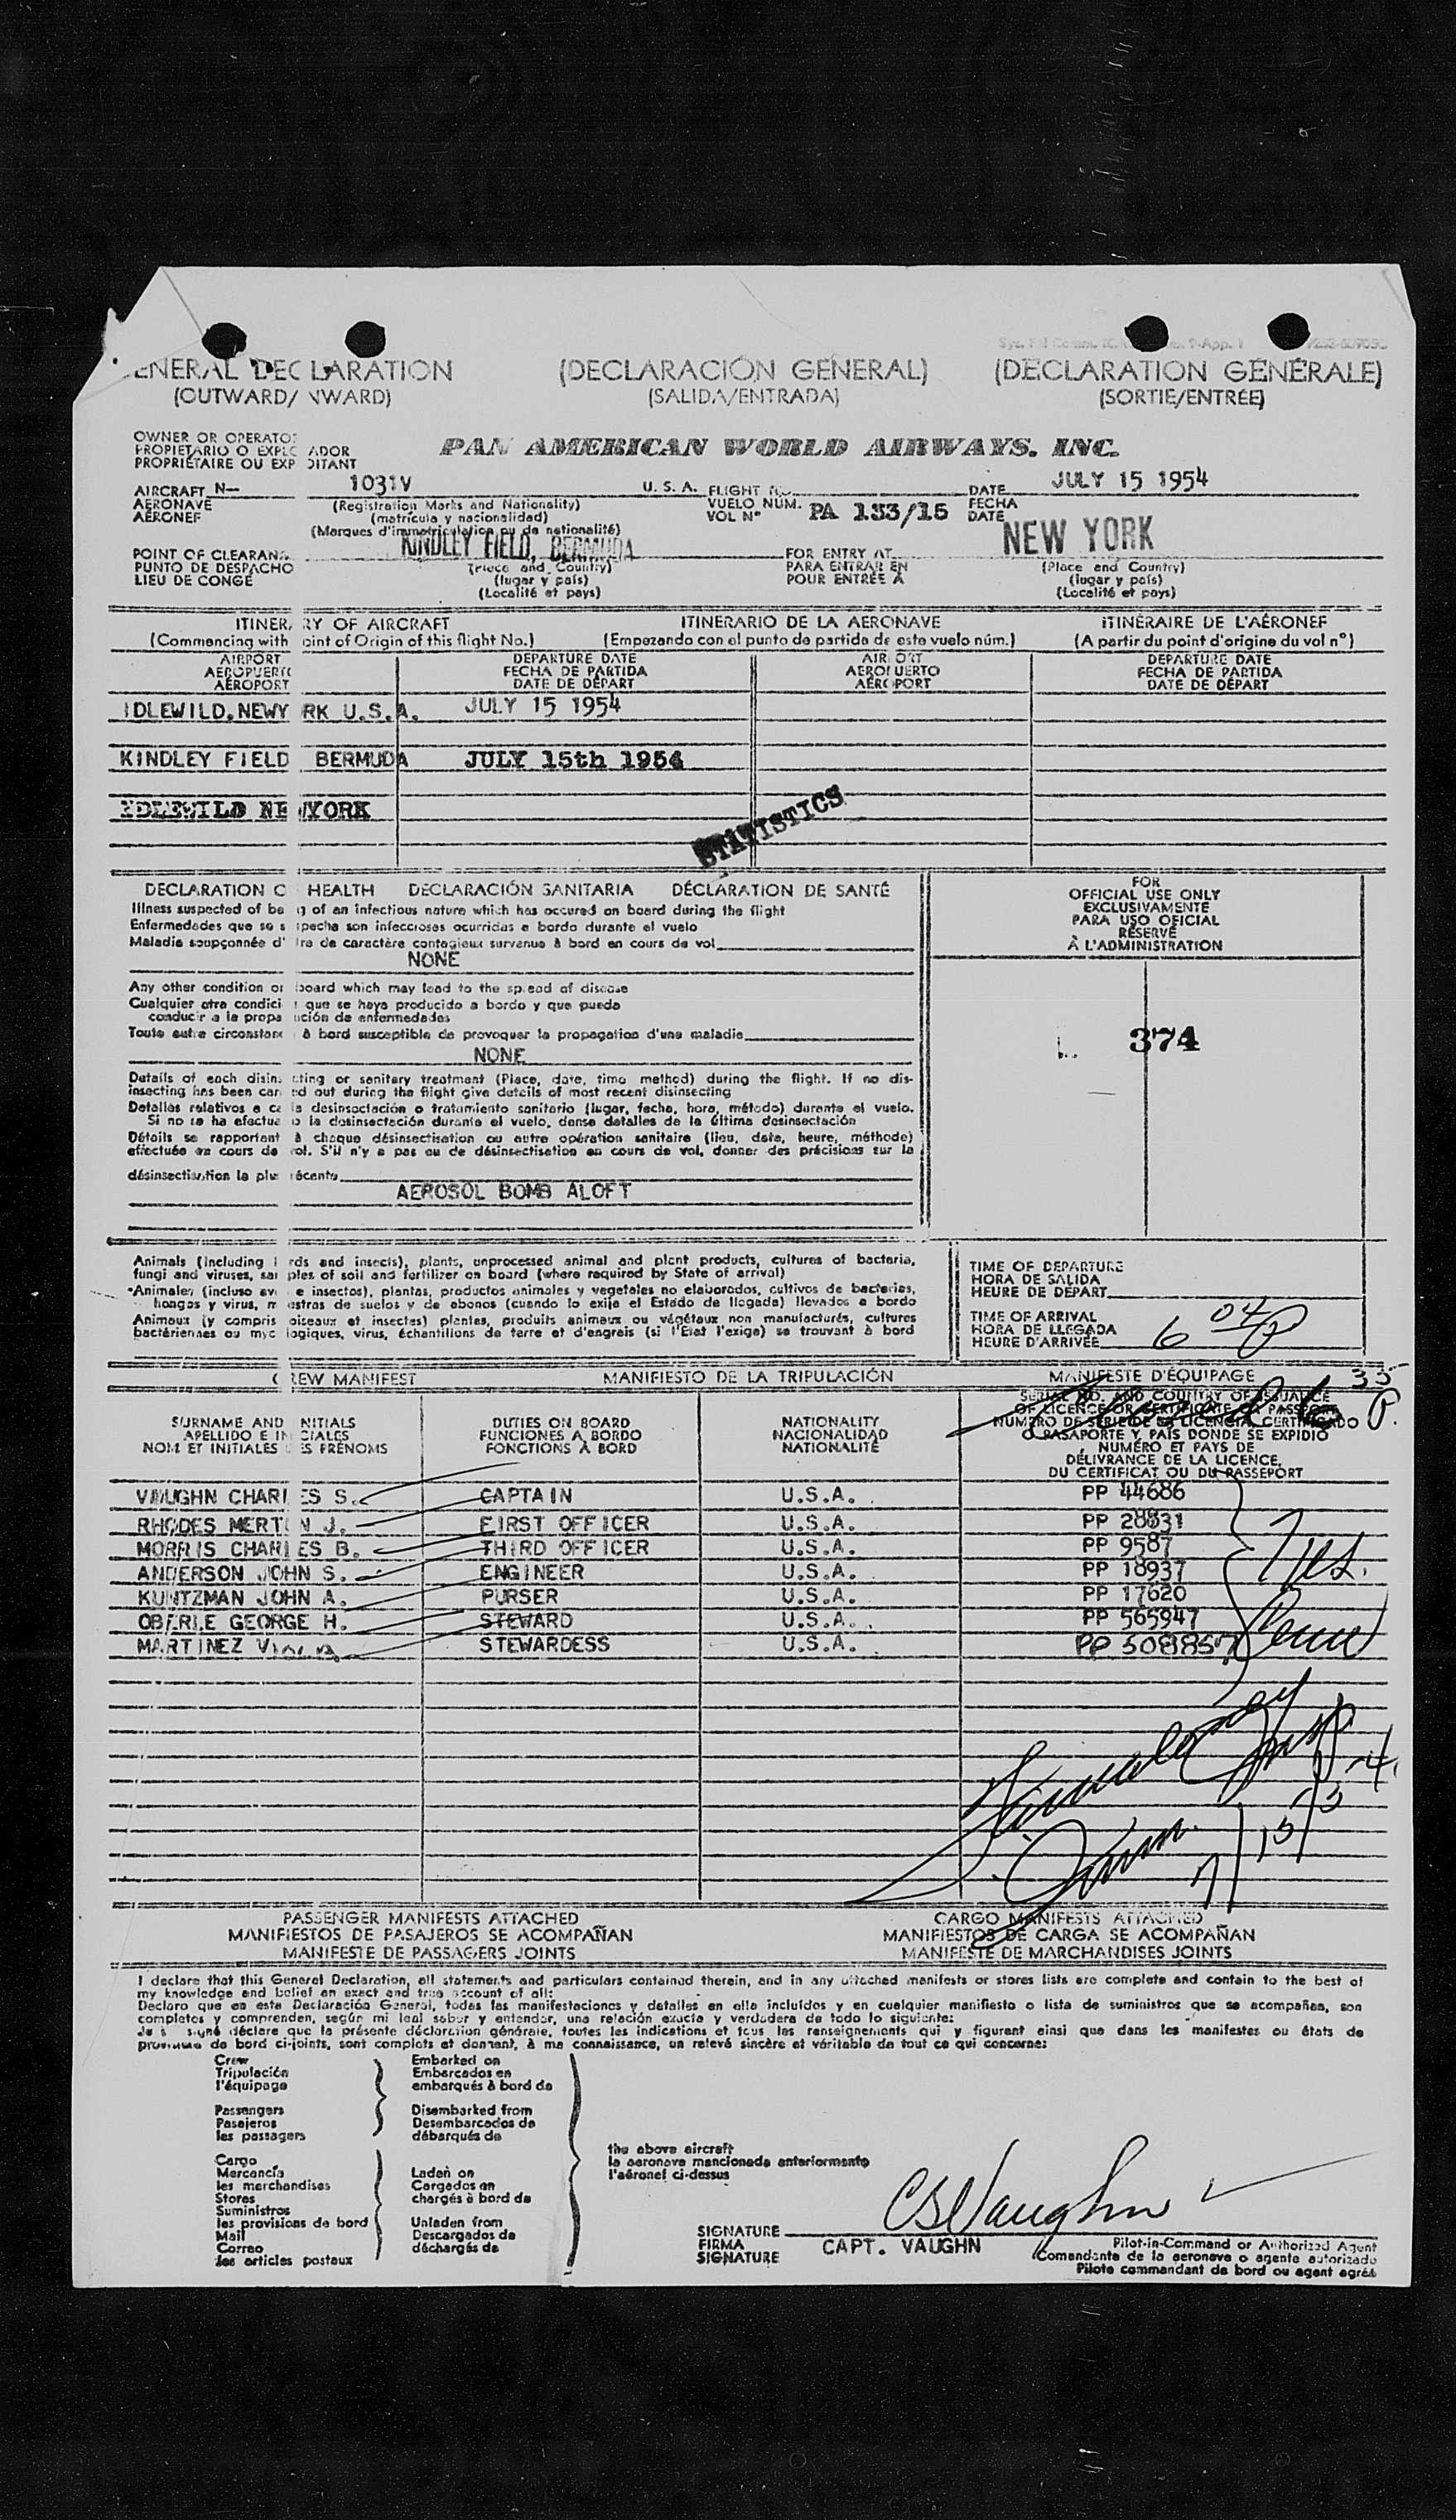 ENERAL DECLARATION (DECLARACIÓN GENERAL) (DECLARATION GÉNÉRALE)
(OUTWARD/ NWARD) (SALIDA/ENTRADA) (SORTIE/ENTRÉE)
OWNER OR OPERATO
PROPIETARIO O EXPLO ADOR PAN AMERICAN WORLD AIRWAYS, INC.
PROPRIÉTAIRE OU EXP OITANT
AIRCRAFT N— 1031V U. S. A. FLIGHT NO. DATE JULY 15 1954
AERONAVE (Registration Marks and Nationality) VUELO NÚM. PA 133/15 FECHA
AÉRONEF (matrícula y nacionalidad) VOL Nº DATE
(Marques d'immatriculation ou de nationalité)
KINDLEY FIELD, BERMUDA NEW YORK
POINT OF CLEARAN FOR ENTRY AT
PUNTO DE DESPACHO (Place and Country) PARA ENTRAR EN (Place and Country)
LIEU DE CONGÉ (lugar y país) POUR ENTRÉE À (lugar y país)
(Localité et pays) (Localité et pays)
ITINERA RY OF AIRCRAFT ITINERARIO DE LA AERONAVE ITINÉRAIRE DE L'AÉRONEF
(Commencing with oint of Origin of this flight No.) (Empezando con el punto de partida de este vuelo núm.) (A partir du point d'origine du vol nº)
AIRPORT DEPARTURE DATE AIRPORT DEPARTURE DATE
AEROPUERTO FECHA DE PARTIDA AEROPUERTO FECHA DE PARTIDA
AÉROPORT DATE DE DÉPART AÉROPORT DATE DE DÉPART
IDLEWILD.NEWY RK U.S.A. JULY 15 1954
KINDLEY FIELD BERMUDA JULY 15th 1954
IDLEWILD NE WYORK
STATISTICS
DECLARATION O HEALTH DECLARACIÓN SANITARIA DÉCLARATION DE SANTÉ
Illness suspected of be g of an infectious nature which has occured on board during the flight
Enfermedades que se s pecha son infecciosas ocurridas a bordo durante el vuelo
Maladie soupçonnée d' tre de caractère contagieux survenue à bord en cours de vol
NONE
FOR
OFFICIAL USE ONLY
EXCLUSIVAMENTE
PARA USO OFICIAL
RÉSERVÉ
À L'ADMINISTRATION
Any other condition on board which may lead to the spread of disease
Cualquier otra condici que se haya producido a bordo y que pueda
conducir a la propa ción de enfermedades
Toute autre circonstanc à bord susceptible de provoquer la propagation d'une maladie
NONE
374
Details of each disin cting or sanitary treatment (Place, date, time method) during the flight. If no dis-
insecting has been carr ed out during the flight give details of most recent disinsecting
Detalles relativos a ca a desinsectación o tratamiento sanitario (lugar, fecha, hora, método) durante el vuelo.
Si no se ha efectua o la desinsectación durante el vuelo, dense detalles de la última desinsectación
Détails se rapportant à chaque désinsectisation ou autre opération sanitaire (lieu, date, heure, méthode)
effectuée en cours de vol. S'il n'y a pas eu de désinsectisation en cours de vol, donner des précisions sur la
désinsectisation la plu récente
AEROSOL BOMB ALOFT
Animals (including b rds and insects), plants, unprocessed animal and plant products, cultures of bacteria,
fungi and viruses, sam ples of soil and fertilizer on board (where required by State of arrival)
Animales (incluso ave e insectos), plantas, productos animales y vegetales no elaborados, cultivos de bacterias,
hongos y virus, m estras de suelos y de abonos (cuando lo exija el Estado de llegada) llevados a bordo
Animaux (y compris oiseaux et insectes) plantes, produits animaux ou végétaux non manufacturés, cultures
bactériennes ou myc logiques, virus, échantillons de terre et d'engrais (si l'Etat l'exige) se trouvant à bord
TIME OF DEPARTURE
HORA DE SALIDA
HEURE DE DÉPART
TIME OF ARRIVAL
HORA DE LLEGADA
HEURE D'ARRIVÉE 6 04 P
CREW MANIFEST MANIFIESTO DE LA TRIPULACIÓN MANIFESTE D'ÉQUIPAGE
6 35 P.
SURNAME AND INITIALS DUTIES ON BOARD NATIONALITY SERIAL NO. AND COUNTRY OF ISSUANCE
APELLIDO E INICIALES FUNCIONES A BORDO NACIONALIDAD OF LICENCE OR CERTIFICATE OR PASSPORT
NOM ET INITIALES DES PRÉNOMS FONCTIONS À BORD NATIONALITÉ NÚMERO DE SERIE DE LA LICENCIA, CERTIFICADO
O PASAPORTE Y PAÍS DONDE SE EXPIDIÓ
NUMÉRO ET PAYS DE
DÉLIVRANCE DE LA LICENCE,
DU CERTIFICAT OU DU PASSEPORT
VAUGHN CHARLES S. CAPTAIN U.S.A. PP 44686
RHODES MERTON J. FIRST OFFICER U.S.A. PP 28831
MORRIS CHARLES B. THIRD OFFICER U.S.A. PP 9587
ANDERSON JOHN S. ENGINEER U.S.A. PP 18937
KUNTZMAN JOHN A. PURSER U.S.A. PP 17620
OBERLE GEORGE H. STEWARD U.S.A. PP 565947
MARTINEZ STEWARDESS U.S.A. PP 508857
7/15/54
PASSENGER MANIFESTS ATTACHED CARGO MANIFESTS ATTACHED
MANIFIESTOS DE PASAJEROS SE ACOMPAÑAN MANIFIESTOS DE CARGA SE ACOMPAÑAN
MANIFESTE DE PASSAGERS JOINTS MANIFESTE DE MARCHANDISES JOINTS
I declare that this General Declaration, all statements and particulars contained therein, and in any attached manifests or stores lists are complete and contain to the best of
my knowledge and belief an exact and true account of all:
Declaro que en esta Declaración General, todas las manifestaciones y detalles en ella incluidos y en cualquier manifiesto o lista de suministros que se acompañan, son
completos y comprenden, según mi leal saber y entender, una relación exacta y verdadera de todo lo siguiente:
Je s signé déclare que la présente déclaration générale, toutes les indications et tous les renseignements qui y figurent ainsi que dans les manifestes ou états de
provisions de bord ci-joints, sont complets et donnent, à ma connaissance, un relevé sincère et véritable de tout ce qui concerne:
Crew Embarked on
Tripulación Embarcados en
l'équipage embarqués à bord de
Passengers Disembarked from
Pasajeros Desembarcados de
les passagers débarqués de
the above aircraft
la aeronave mencionada anteriormente
l'aéronef ci-dessus
Cargo
Mercancía Laden on
les marchandises Cargados en
Stores chargés à bord de
Suministros
les provisions de bord Unladen from
Mail Descargados de
Correo déchargés de
les articles postaux
CS Vaughn
SIGNATURE
FIRMA CAPT. VAUGHN
SIGNATURE
Pilot-in-Command or Authorized Agent
Comandante de la aeronave o agente autorizado
Pilote commandant de bord ou agent agréé